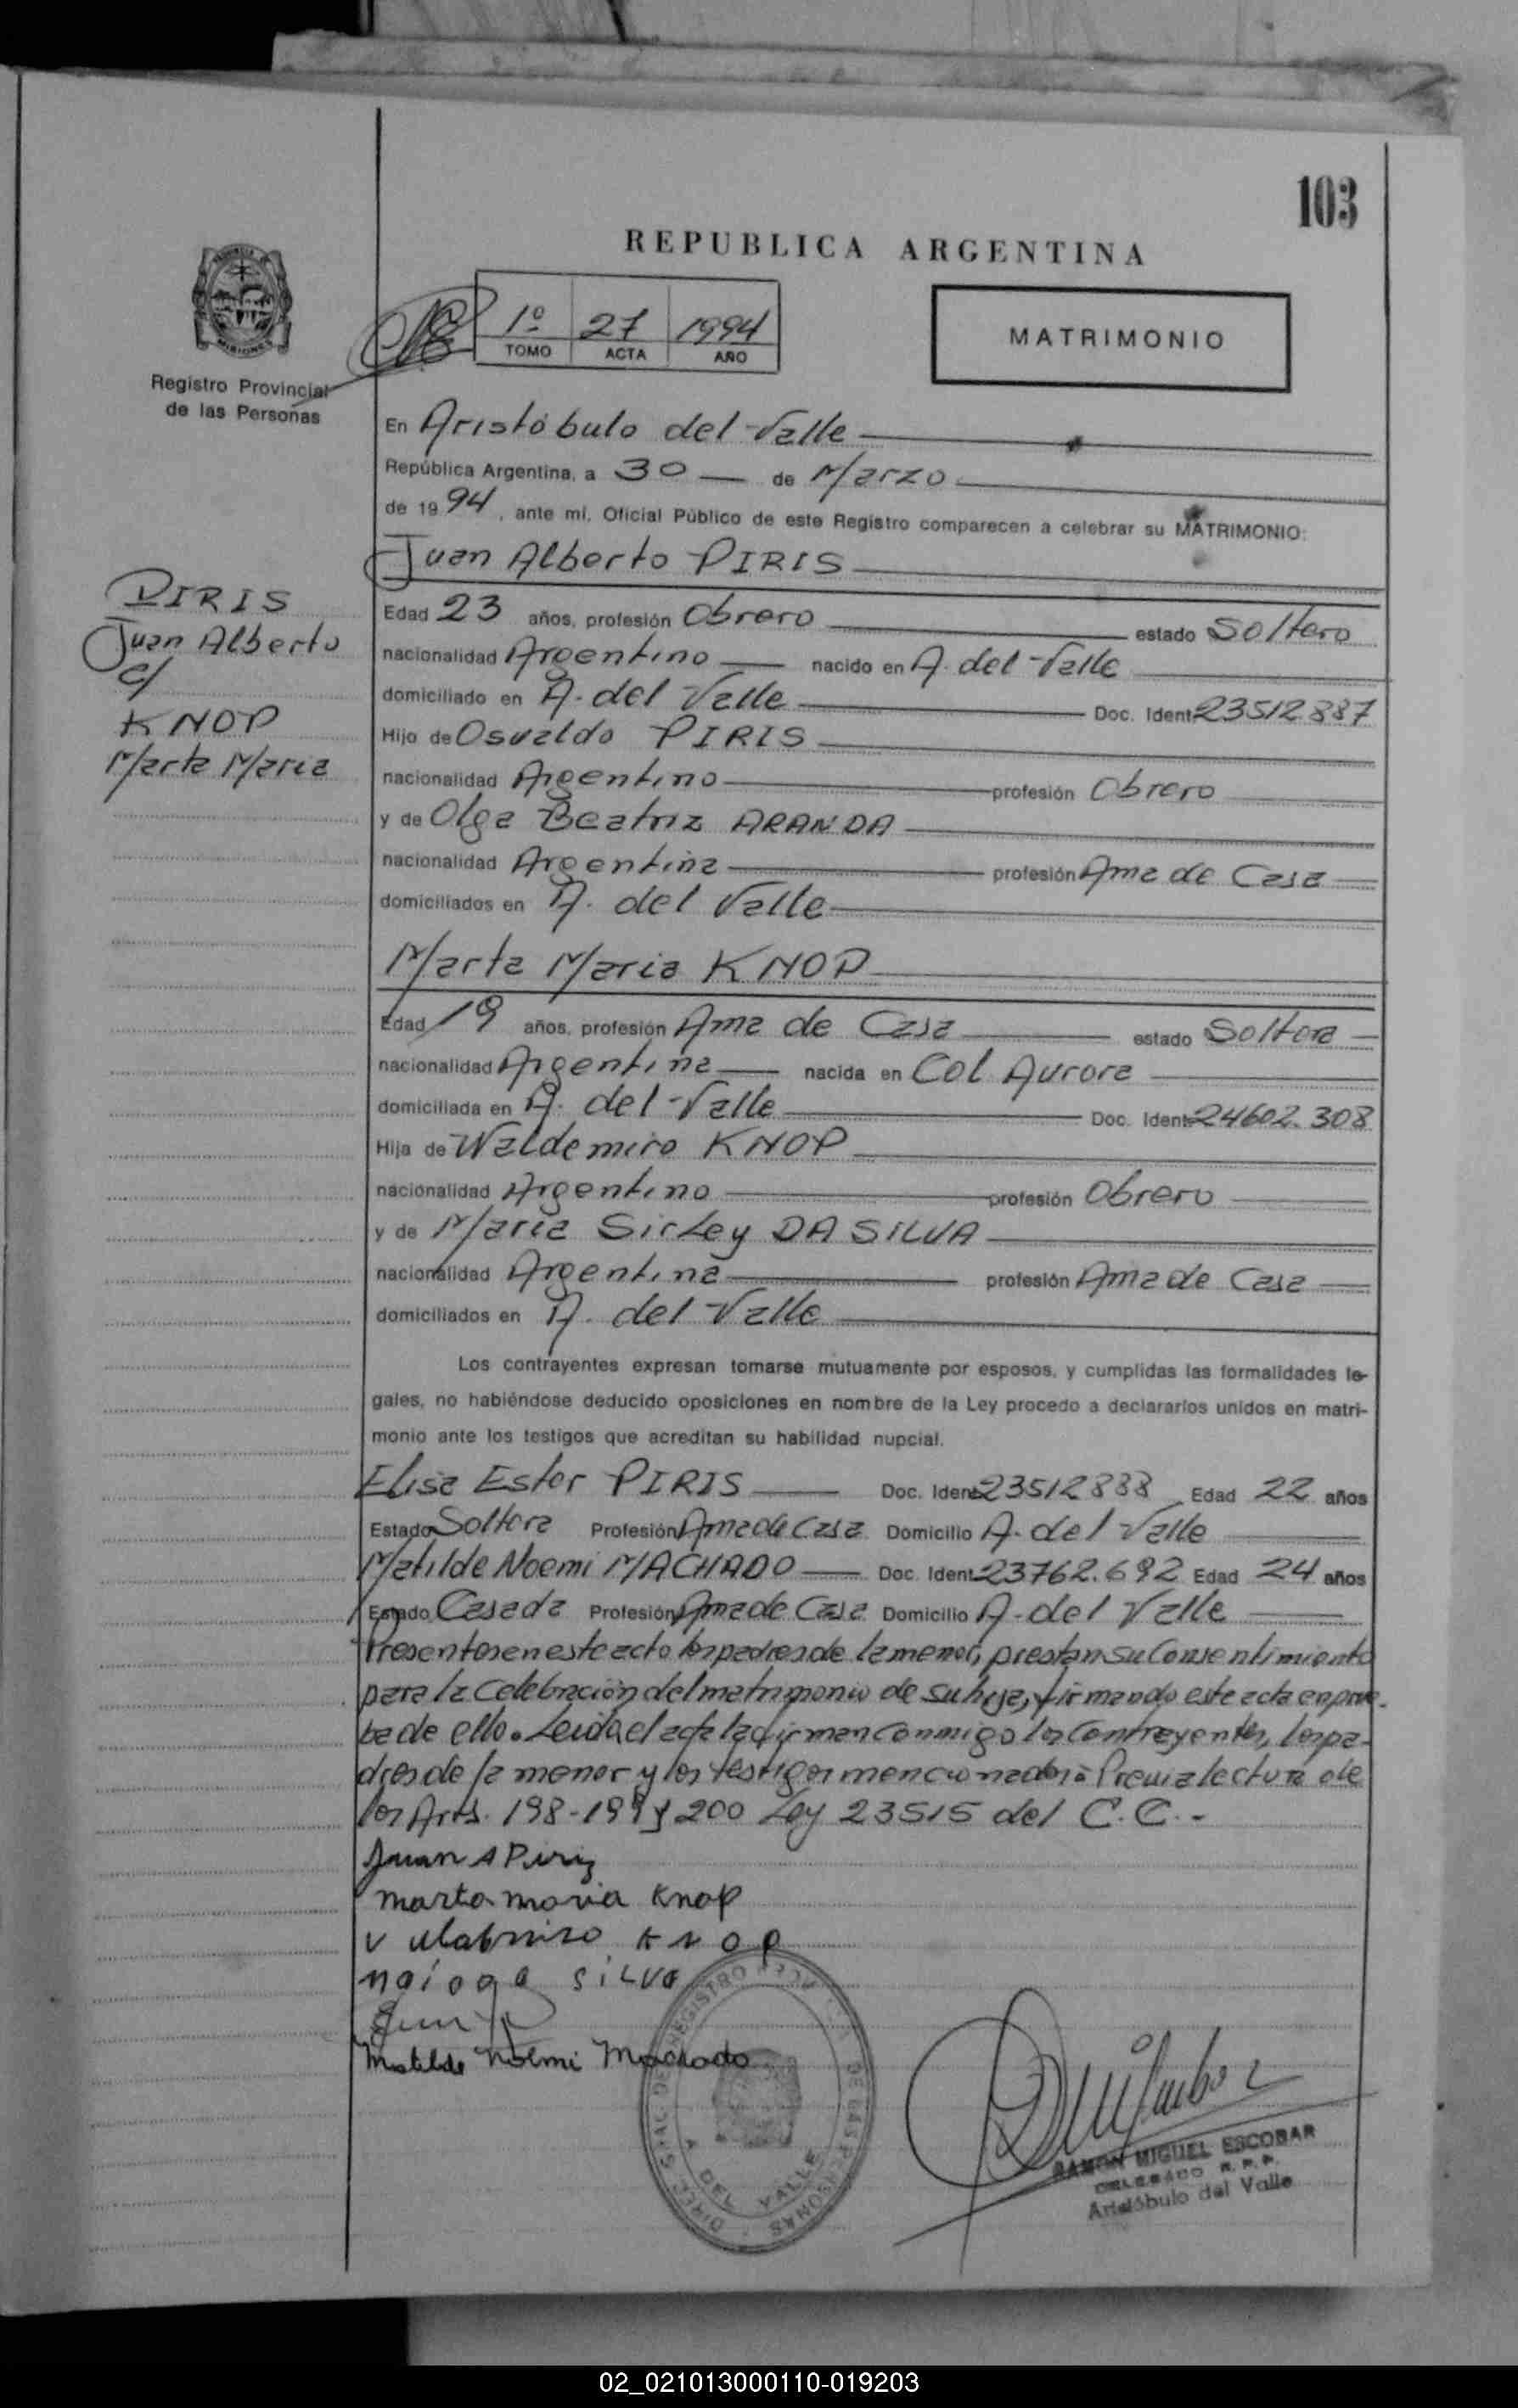 103
REPUBLICA ARGENTINA
1º 27 1994
TOMO ACTA AÑO
MATRIMONIO
MISIONES
Registro Provincial
de las Personas
En Aristóbulo del Valle
República Argentina, a 30 de Marzo
de 1994, ante mí, Oficial Público de este Registro comparecen a celebrar su MATRIMONIO:
Juan Alberto PIRIS
PIRIS
Juan Alberto
c/
KNOP
Marta Maria
Edad 23 años, profesión Obrero estado Soltero
nacionalidad Argentino nacido en A. del Valle
domiciliado en A. del Valle Doc. Ident. 23512887
Hijo de Osvaldo PIRIS
nacionalidad Argentino profesión Obrero
y de Olga Beatriz ARANDA
nacionalidad Argentina profesión Ama de Casa
domiciliados en A. del Valle
Marta Maria KNOP
Edad 19 años, profesión Ama de Casa estado Soltera
nacionalidad Argentina nacida en Col Aurora
domiciliada en A. del Valle Doc. Ident. 24602.308
Hija de Waldemiro KNOP
nacionalidad Argentino profesión Obrero
y de Maria Sirley DA SILVA
nacionalidad Argentina profesión Ama de Casa
domiciliados en A. del Valle
Los contrayentes expresan tomarse mutuamente por esposos, y cumplidas las formalidades le-
gales, no habiéndose deducido oposiciones en nombre de la Ley procedo a declararlos unidos en matri-
monio ante los testigos que acreditan su habilidad nupcial.
Elisa Ester PIRIS Doc. Ident. 23512888 Edad 22 años
Estado Soltera Profesión Ama de Casa Domicilio A. del Valle
Matilde Noemi MACHADO Doc. Ident. 23762.692 Edad 24 años
Estado Casada Profesión Ama de Casa Domicilio A. del Valle
Presentes en este acto los padres de la menor, prestan su Consentimiento
para la Celebración del matrimonio de su hija, firmando este acta en prue-
ba de ello. Leida el acta la firman conmigo los Contrayentes, los pa-
dres de la menor y los testigos mencionados. Previa lectura de
los Arts. 198-199 y 200 Ley 23515 del C.C.-
Juan A Piriz
marta maria Knop
KNOP
SiLva
Matilde Noemi Machado
DIREC. GRAL. DEL REGISTRO PROV. DE LAS PERSONAS
A. DEL VALLE
RAMON MIGUEL ESCOBAR
DELEGADO R. P. P.
Aristóbulo del Valle
02_021013000110-019203